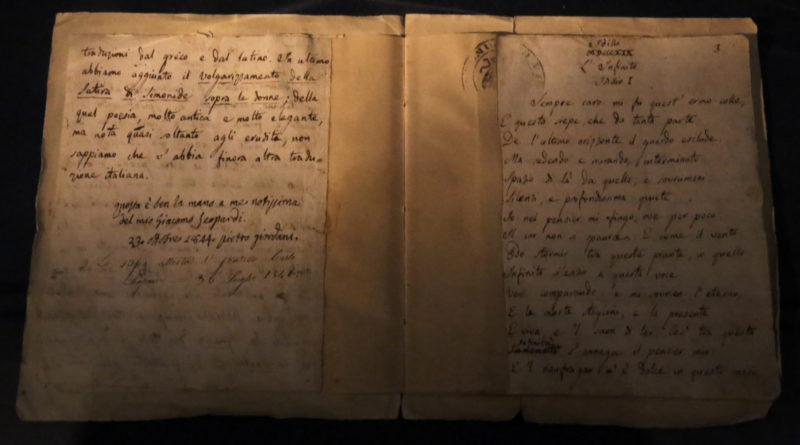 traduzioni dal greco e dal latino. In ultimo
abbiamo aggiunto il volgarizzamento della
Satira di Simonide sopra le donne; della
qual poesia, molto antica e molto elegante,
ma nota quasi soltanto agli eruditi, non
sappiamo che v'abbia finora altra tradu-
zione italiana.
questa è ben la mano a me notissima
del mio Giacomo Leopardi.
23. 1844. pietro giordani.
Luglio 184
3
Idillio
MDCCCXIX
L'Infinito
Idillio I
Sempre caro mi fu quest'ermo colle,
E questa siepe, che da tanta parte
De l'ultimo orizzonte il guardo esclude.
Ma sedendo e mirando, interminato
Spazio di là da quella, e sovrumani
Silenzi, e profondissima quiete
Io nel pensier mi fingo, ove per poco
Il cor non si spaura. E come il vento
Odo stormir tra queste piante, io quello
Infinito silenzio a questa voce
Vo comparando: e mi sovvien l'eterno,
E le morte stagioni, e la presente
E viva, e 'l suon di lei. Così tra questa
Infinità
s'annega il pensier mio:
E 'l naufragar m'è dolce in questo mare.